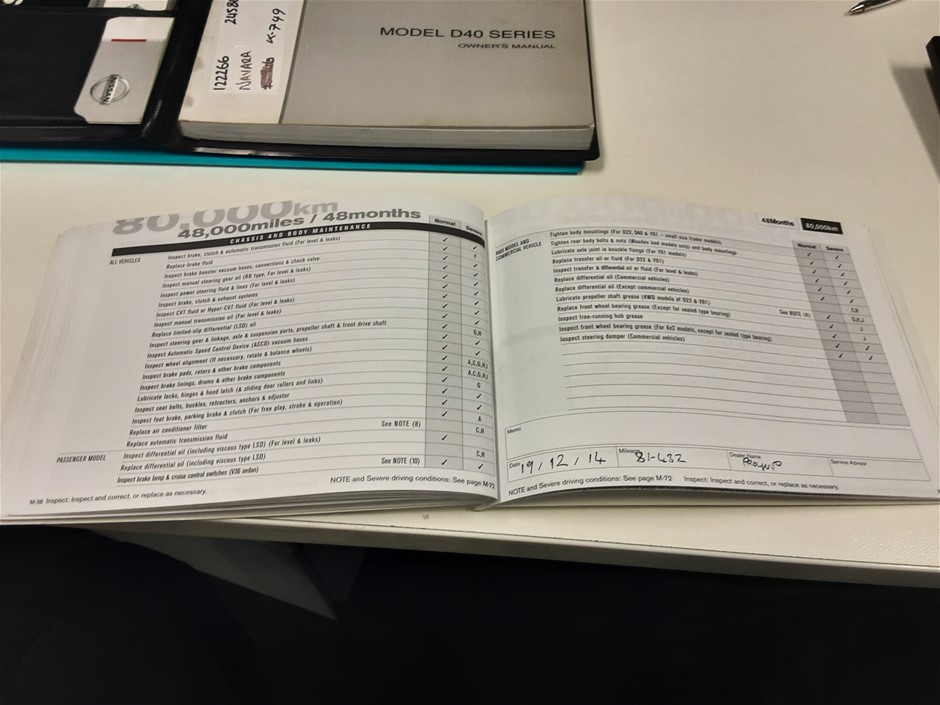 2458
122266
NAVARA
K-749
NISSAN
MODEL D40 SERIES
OWNER'S MANUAL
80,000km
48,000miles / 48months
Normal
Severe
CHASSIS AND BODY MAINTENANCE
ALL VEHICLES
Inspect brake, clutch & automatic transmission fluid (For level & leaks)
Replace brake fluid
Inspect brake booster vacuum hoses, connections & check valve
Inspect manual steering gear oil (RB type, For level & leaks)
Inspect power steering fluid & lines (For level & leaks)
Inspect brake, clutch & exhaust systems
Inspect CVT fluid or Hyper-CVT fluid (For level & leaks)
Inspect manual transmission oil (For level & leaks)
Replace limited-slip differential (LSD) oil
Inspect steering gear & linkage, axle & suspension parts, propeller shaft & front drive shaft G,H
Inspect Automatic Speed Control Device (ASCD) vacuum hoses
Inspect wheel alignment (If necessary, rotate & balance wheels)
Inspect brake pads, rotors & other brake components A,C,G,H,I
Inspect brake linings, drums & other brake components A,C,G,H,I
Lubricate locks, hinges & hood latch (& sliding door rollers and links) G
Inspect seat belts, buckles, retractors, anchors & adjuster
Inspect foot brake, parking brake & clutch (For free play, stroke & operation) A
Replace air conditioner filter See NOTE (8) C,H
Replace automatic transmission fluid
PASSENGER MODEL Inspect differential oil (including viscous type LSD) (For level & leaks) C,H
Replace differential oil (including viscous type LSD)
Inspect brake lamp & cruise control switches (V36 sedan) See NOTE (10)
NOTE and Severe driving conditions: See page M-72
M-38 Inspect: Inspect and correct, or replace as necessary.
48Months 80,000km
Normal Severe
4WD MODEL AND
COMMERCIAL VEHICLE
Tighten body mountings (For D22, D40 & Y61 – small size frame models)
Tighten rear body bolts & nuts (Wooden bed models only) and body mountings
Lubricate axle joint in knuckle flange (For Y61 models)
Replace transfer oil or fluid (For D22 & Y61)
Inspect transfer & differential oil or fluid (For level & leaks)
Replace differential oil (Commercial vehicles)
Replace differential oil (Except commercial vehicles)
Lubricate propeller shaft grease (4WD models of D22 & Y61) C,H
Replace front wheel bearing grease (Except for sealed type bearing) See NOTE (4) G,H,J
Inspect free-running hub grease
Inspect front wheel bearing grease (For 4x2 models, except for sealed type bearing)
Inspect steering damper (Commercial vehicles)
Memo
Date 19/12/14 Mileage 81-432 Dealer Name Service Advisor
NOTE and Severe driving conditions: See page M-72 Inspect: Inspect and correct, or replace as necessary.